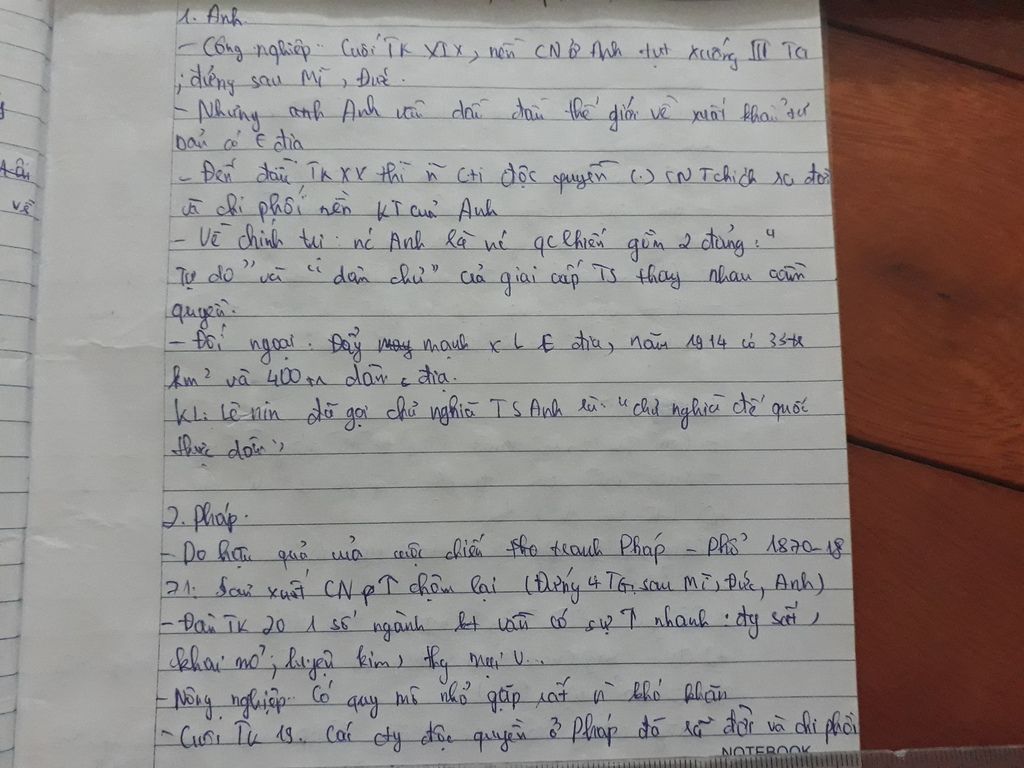 1. Anh
- Công nghiệp: Cuối TK XIX, nền CN ở Anh tụt xuống III TG
; đứng sau Mĩ, Đức.
- Nhưng Anh vẫn dẫn đầu thế giới về xuất khẩu tư
bản có € địa
- Đến đầu TK XX thì n` cti độc quyền (.) CN Tchính ra đời
và chi phối nền KT của Anh
- Về chính trị: nc Anh là nc qc lhiến gồm 2 đảng: "
Tự do" và "dân chủ" của giai cấp TS thay nhau cầm
quyền.
- Đối ngoại: Đẩy mạnh x L € địa, năm 1914 có 33tr
km² và 400tr dân € địa.
KL: Lê nin đã gọi chủ nghĩa TS Anh là: "chủ nghĩa đế quốc
thực dân"
2. Pháp.
- Do hậu quả của cuộc chiến tranh Pháp - Phổ 1870-18
71: Sản xuất CN pT chậm lại (Đứng 4 TG, sau Mĩ, Đức, Anh)
- Đầu TK 20 1 số ngành kt vẫn có sự ↑ nhanh: đg sắt,
khai mỏ; luyện kim, thg mại V...
- Nông nghiệp: Có quy mô nhỏ gặp rất n` khó khăn
- Cuối TK 19. Các cty độc quyền ở Pháp đã ra đời và chi phối
NOTEBOOK
về